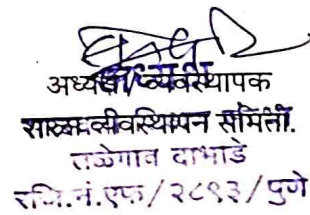 अध्यक्ष/व्यवस्थापक
व्यवस्थापन समिती.
तळेगाव दाभाडे
रजि.नं.एफ/२८९३/पुणे